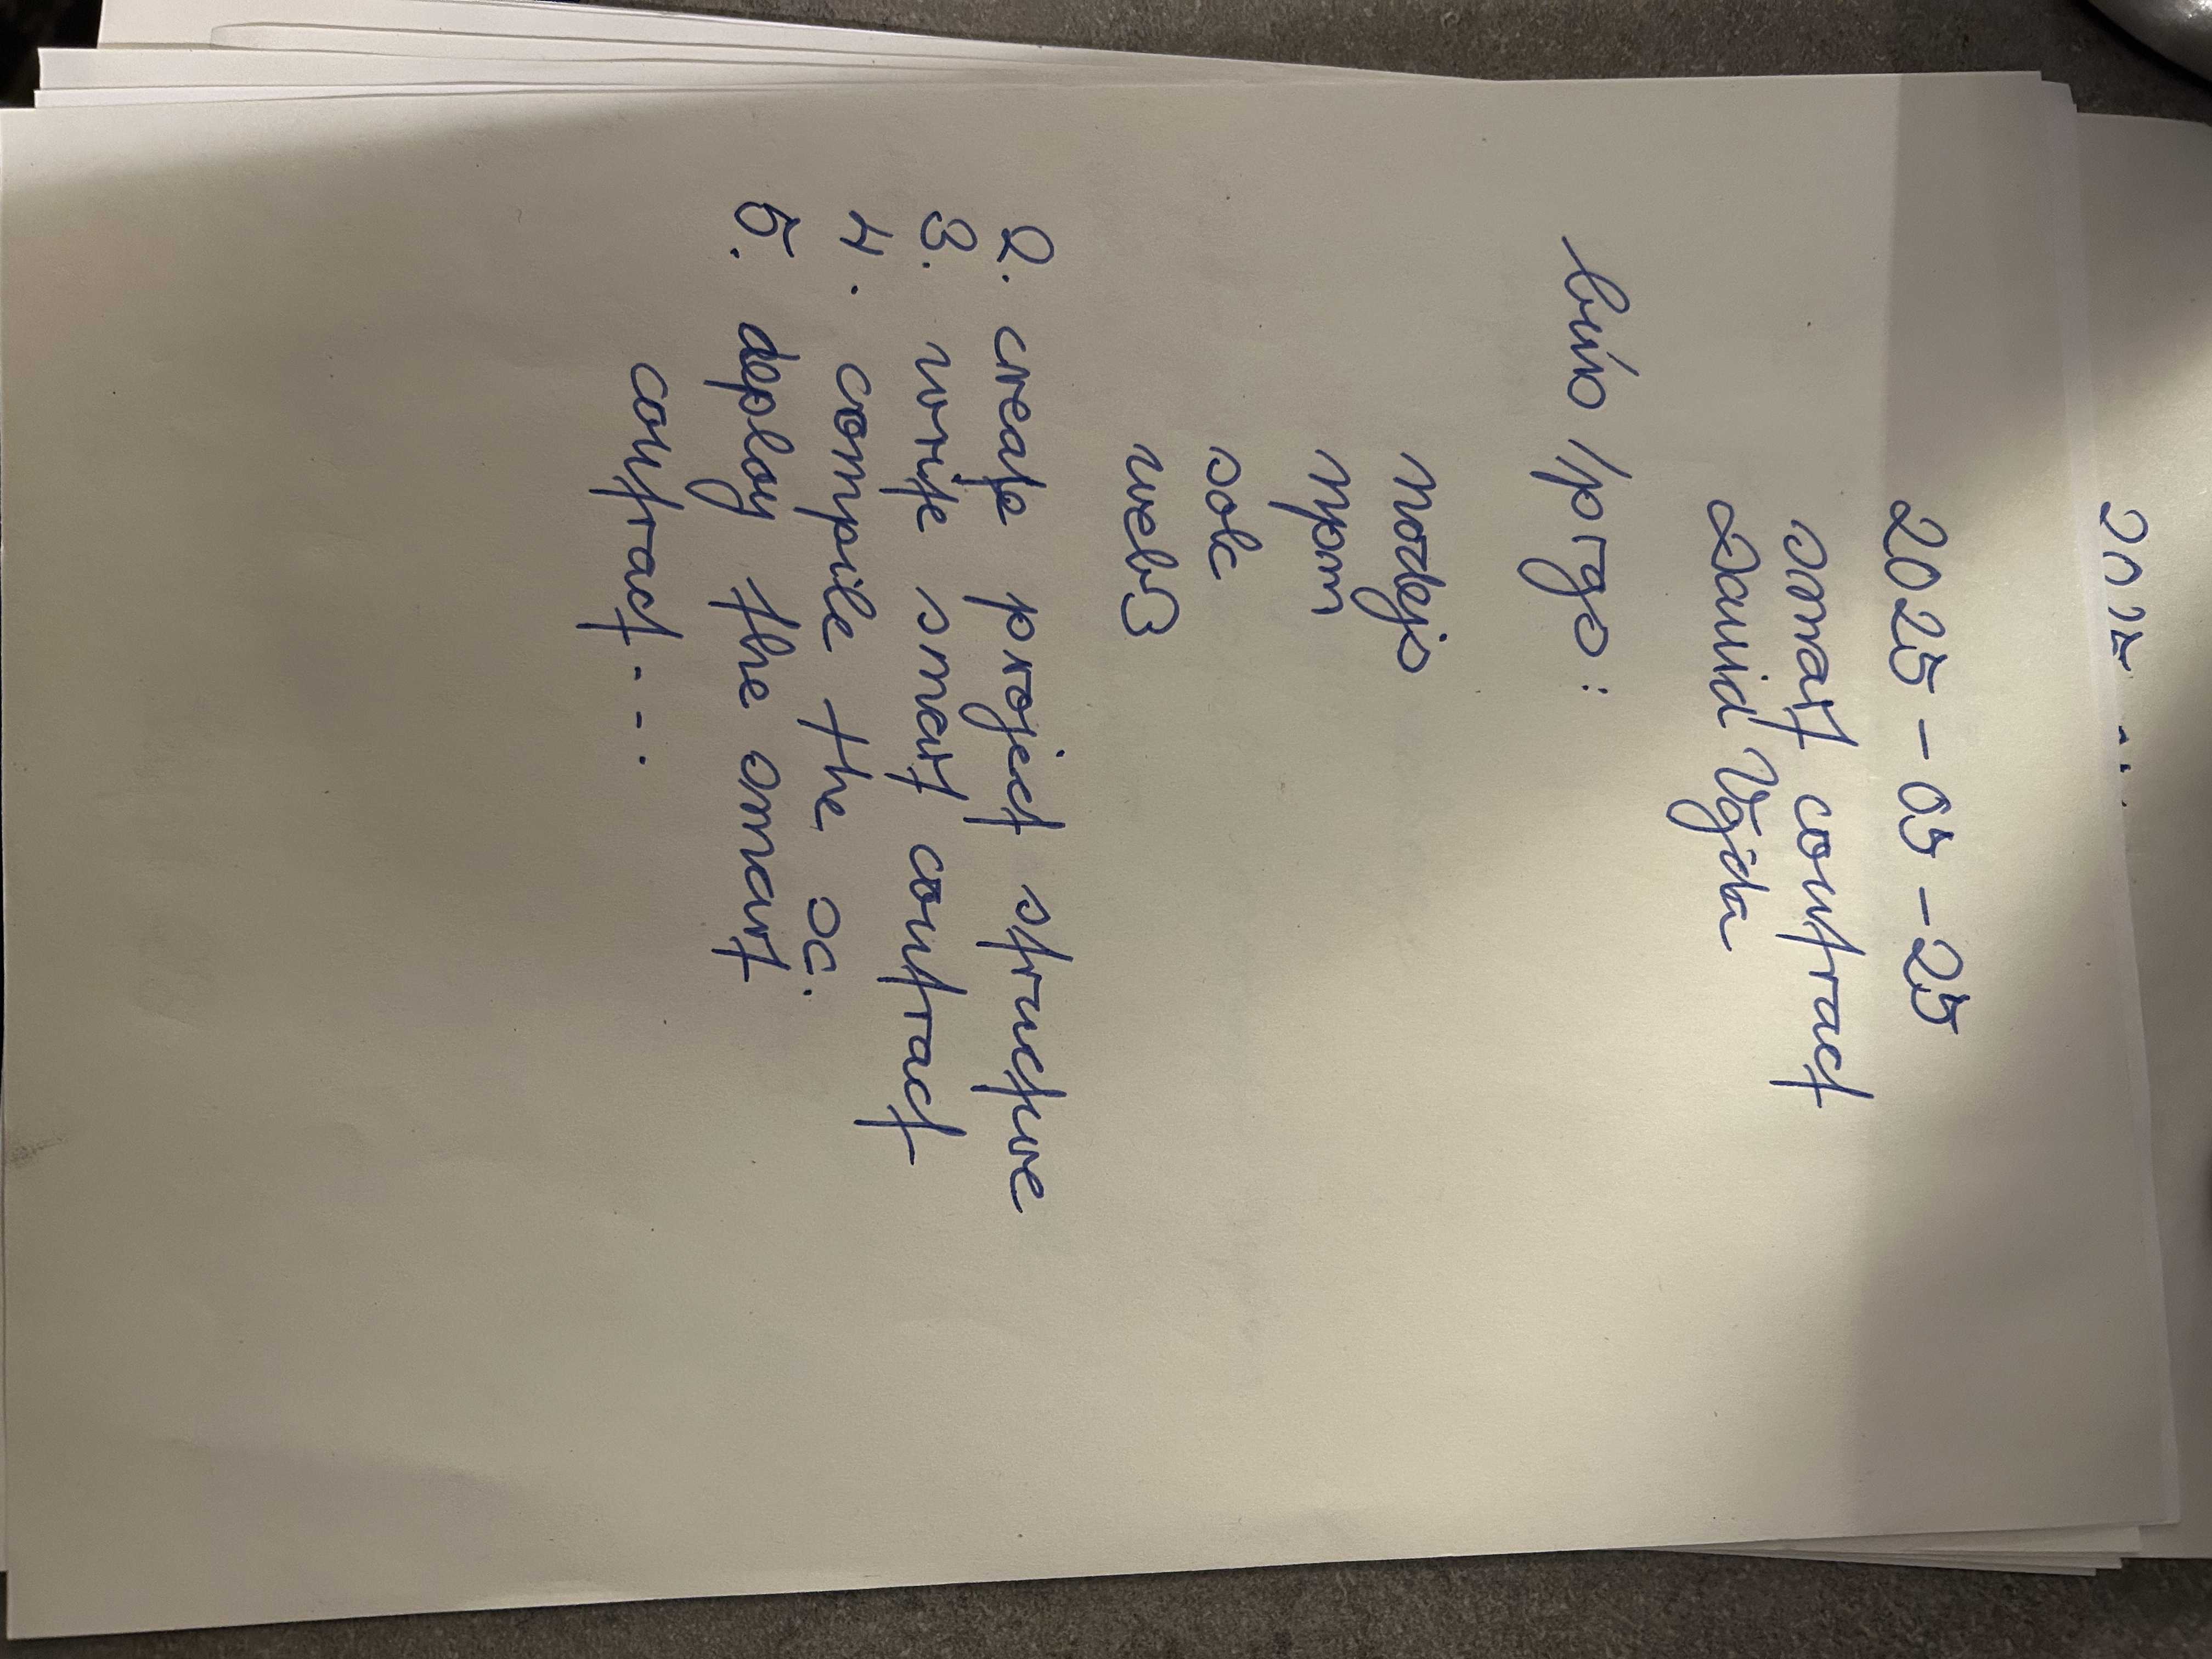 2025-05-25
smart contract
David Vajda
/prgs:
nodejs
npm
solc
web3
2. create project structure
3. write smart contract
4. compile the sc.
5. deploy the smart
contract...